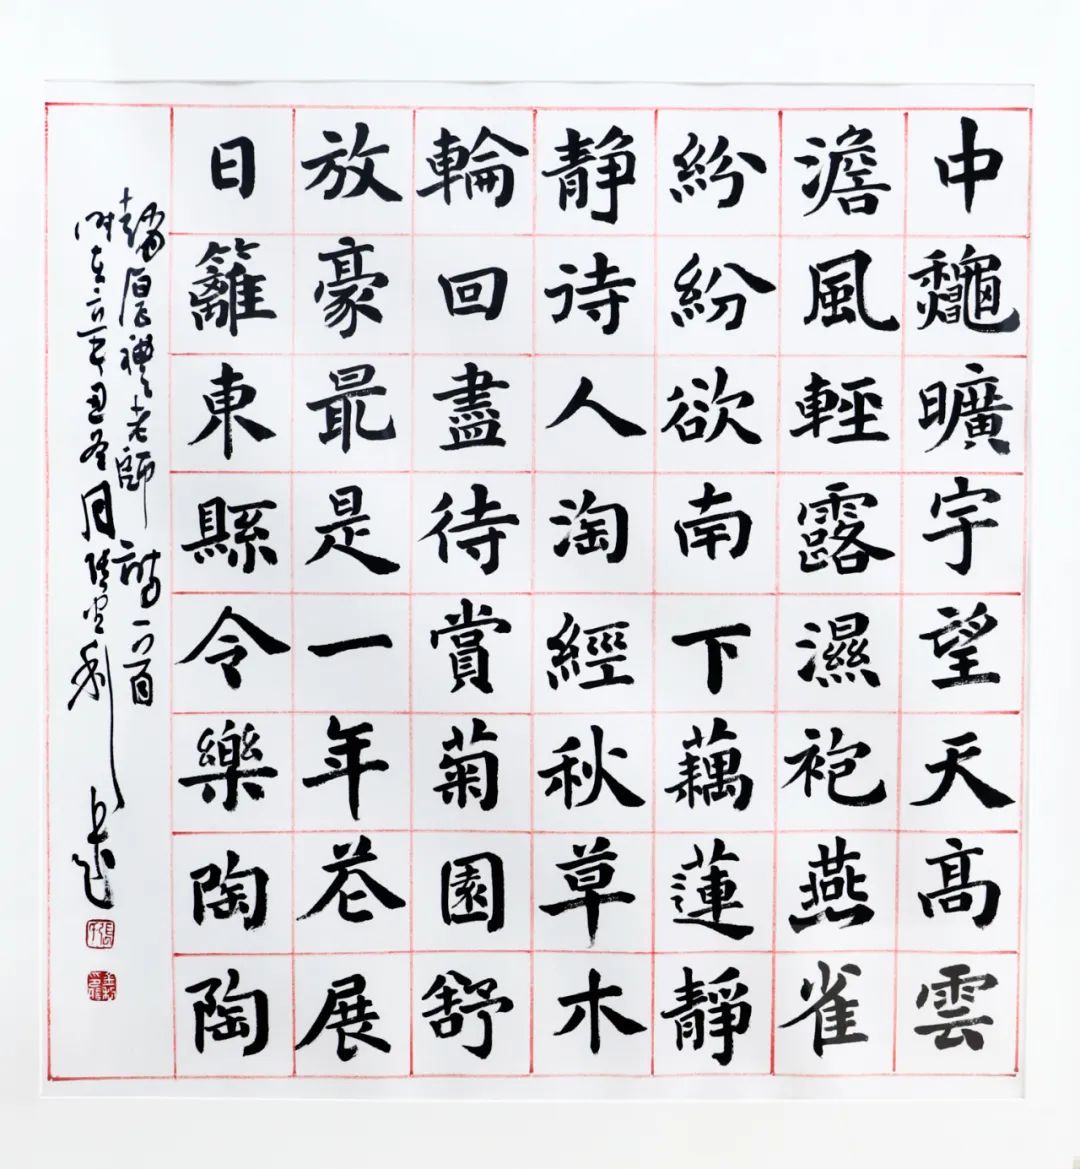 中龝曠宇望天高雲
澹風輕露濕袍燕雀
紛紛欲南下藕蓮靜
靜待人淘經秋草木
輪回盡待賞菊園舒
放豪最是一年花展
日籬東縣令樂陶陶
趙厚禮老師詩一首